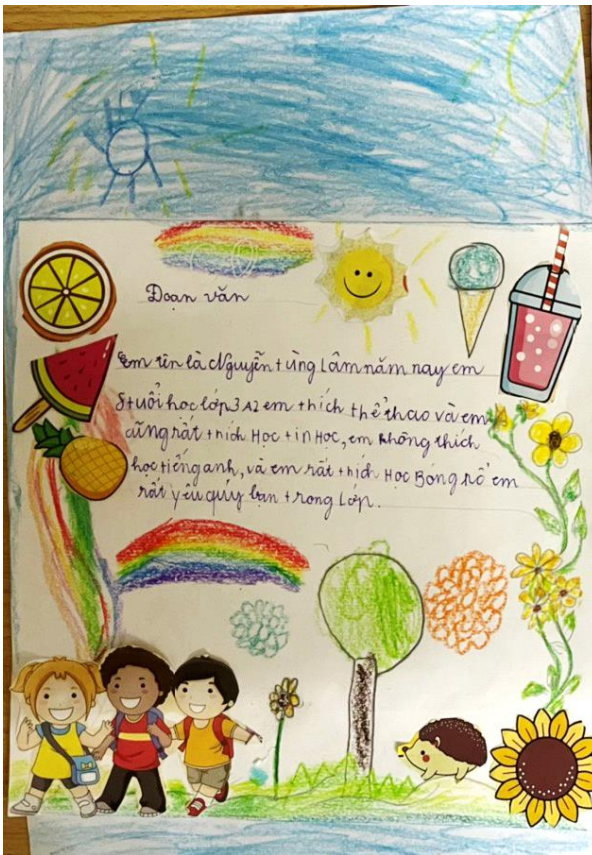 Đoạn văn
Em tên là Nguyễn tùng Lâm năm nay em
8 tuổi học lớp 3A2 em thích thể thao và em
cũng rất thích Học tin Học, em không thích
học tiếng anh, và em rất thích Học Bóng rổ em
rất yêu quý bạn trong Lớp.